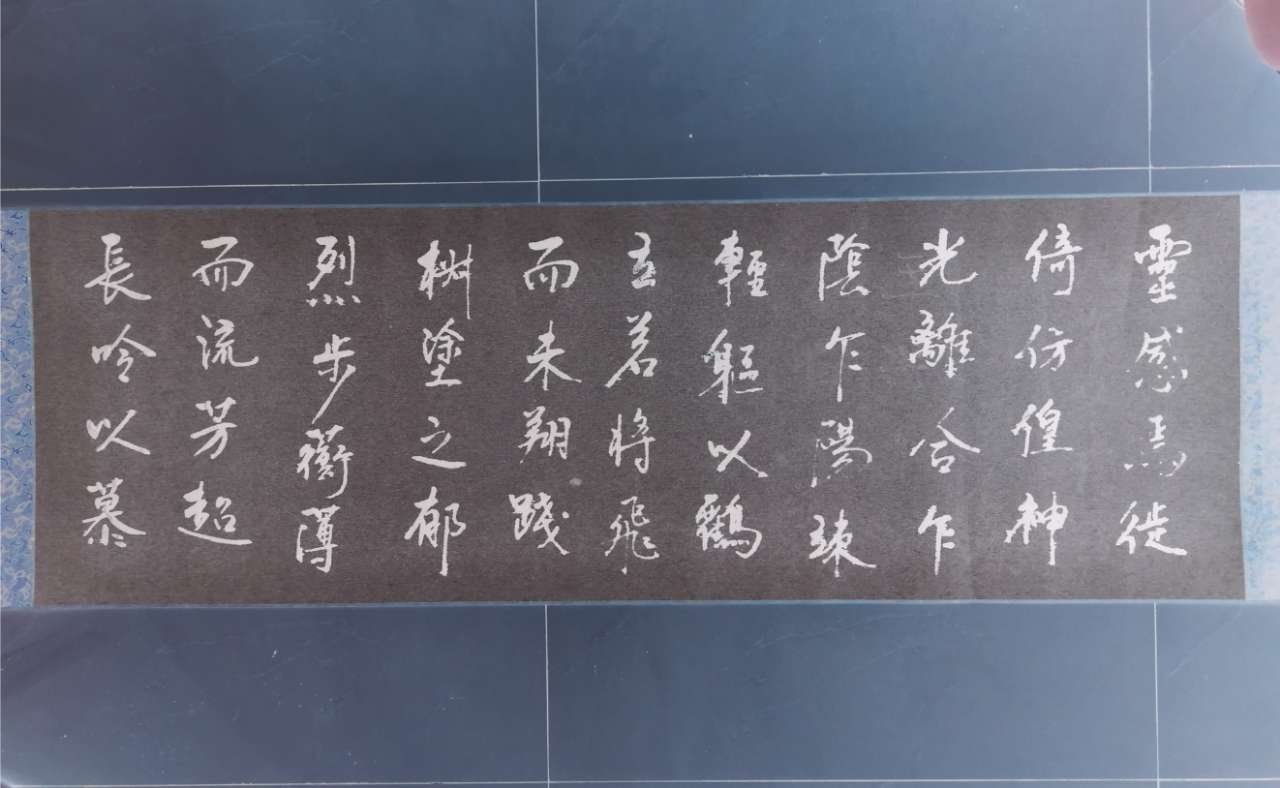 靈感焉徙
倚仿偟神
光離合乍
陰乍陽竦
輕軀以鶴
立若將飛
而未翔踐
椒塗之郁
烈步蘅薄
而流芳超
長吟以慕